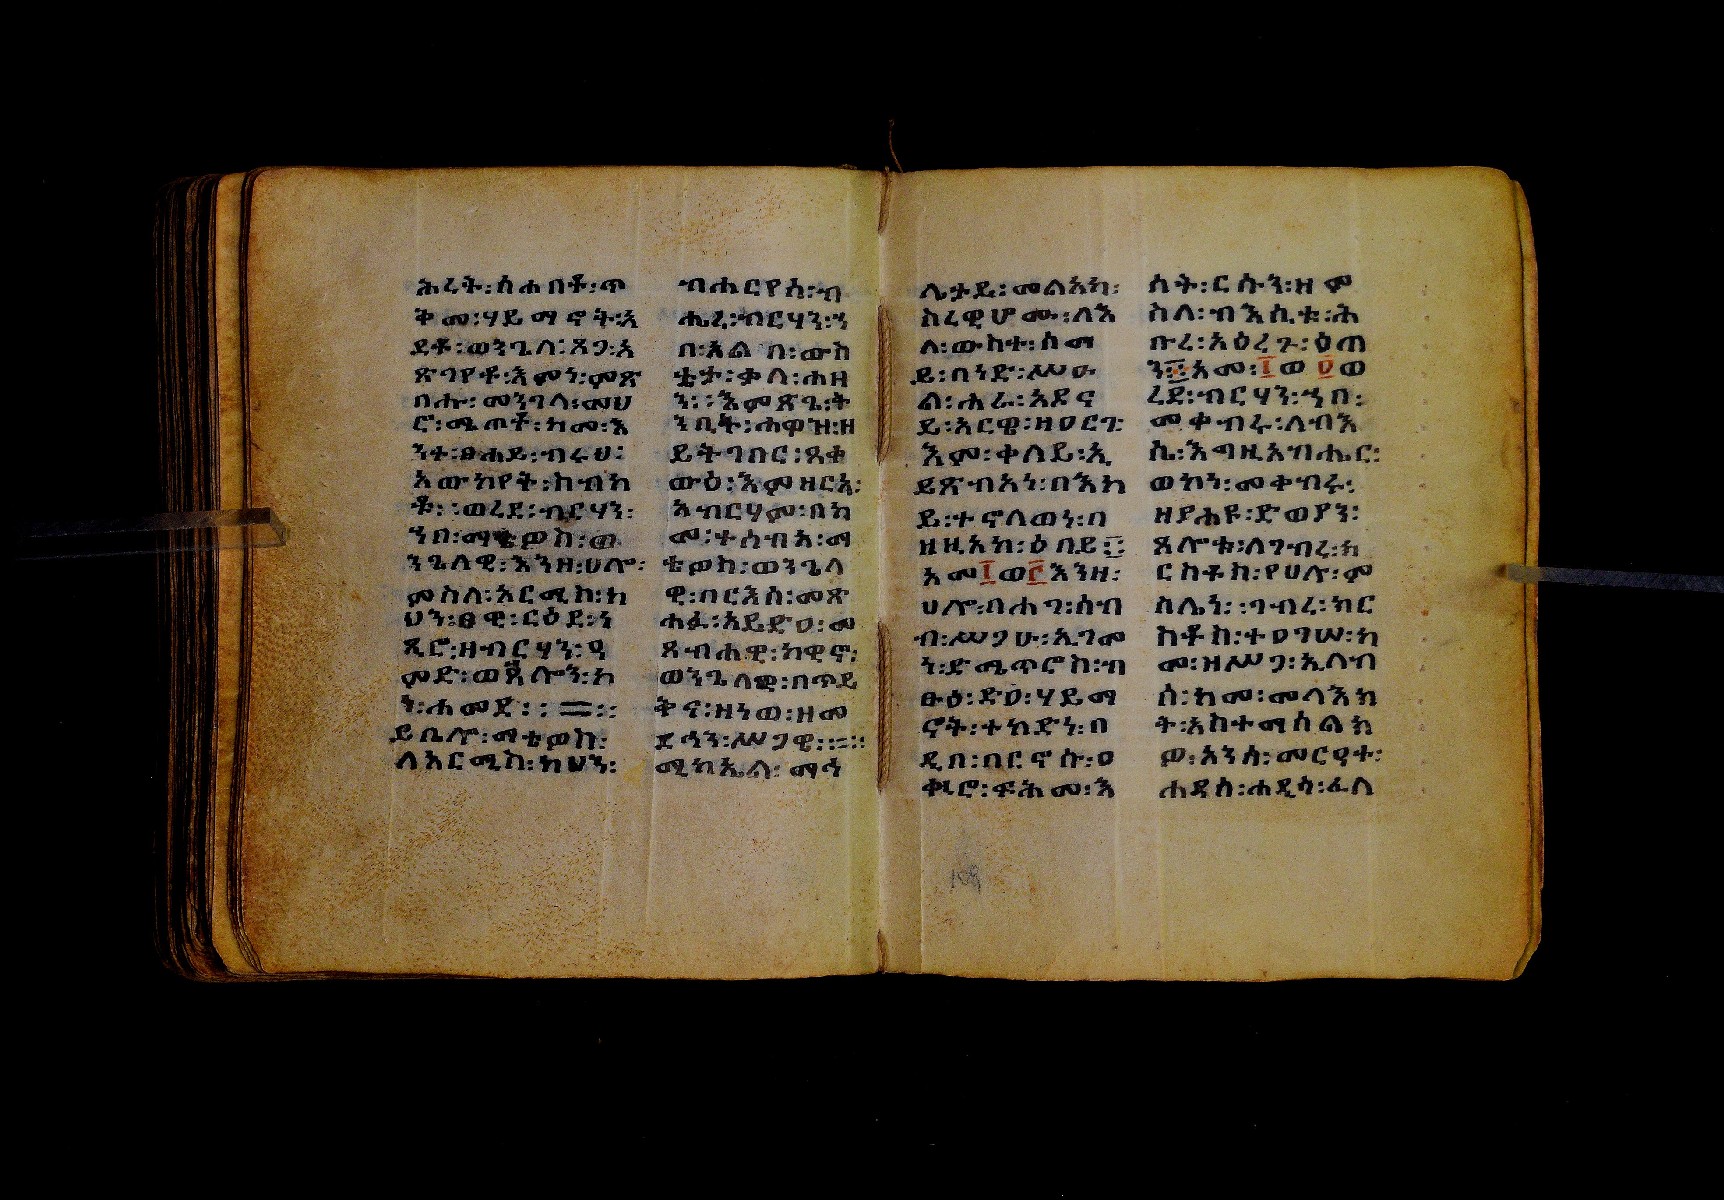 ሕረት፡ስሐበቶ፡ጥ
ቅመ፡ሃይማኖት፡አ
ደቶ፡ወንጌለ፡ጸጋ፡አ
ጽገየቶ፡እምነ፡ምጽ
በሑ፡መንገለ፡መሀ
ሮ፡ሜጦቶ፡ከመ፡እ
ንተ፡ፀሐይ፡ብሩህ፡
አውከየት፡ከብካ
ቶ፡፡ወረደ፡ብርሃን፡
ኀበ፡ማቴዎስ፡ወ
ንጌለዊ፡እንዘ፡ሀሎ፡
ምስለ፡አርሚስ፡ካ
ህን፡ፀዊ፡ርዕደ፡ነ
ጺሮ፡ዘብርሃን፡ዓ
ምድ፡ወጸሎን፡ከ
ነ፡ሐመደ፡፡፡፡
ይቤሎ፡ማቴዎስ፡
ለአርሚስ፡ካህን፡
ብሐርየስ፡ብ
ሔረ፡ብርሃን፡ኀ
በ፡አልቦ፡ውስ
ቴታ፡ቃለ፡ሐዘ
ን፡፡እምጽጌ፡ት
ንቢት፡ሐዋዝ፡ዘ
ይትገበር፡ጸቀ
ውዕ፡እምዘርአ፡
አብርሃም፡በከ
መ፡ተሰብአ፡ማ
ቴዎስ፡ወንጌላ
ዊ፡በርእሰ፡መጽ
ሐፉ፡አይድዐ፡መ
ጸብሐዊ፡ከዊኖ፡
ወንጌላዊ፡በጥይ
ቅና፡ዘነወ፡ዘመ
ደሳን፡ሥጋዊ፡፡
ሚካኤል፡ማኅ
ሌታይ፡መልአክ፡
ሰረዊሆሙ፡ለእ
ለ፡ውስተ፡ሰማ
ይ፡በነድ፡ሥዑ
ል፡ሐራ፡አደና
ይ፡አርዌ፡ዘዐርገ፡
እም፡ቀላይ፡ኢ
ይጽብአነ፡በእከ
ይ፡ተኖለወነ፡በ
ዘዚአከ፡ዕበይ፡፡
አመ፲ወ፫እንዘ፡
ሀሎ፡በሐገ፡ሰብ
ብ፡ሥጋሁ፡ኢገመ
ነ፡ድሜጥሮስ፡ብ
ፁዕ፡ድዐ፡ሃይማ
ኖት፡ተከድነ፡በ
ዲበ፡በርኖሱ፡ዐ
ቀጺሮ፡ፍሕመ፡እ
ሳት፡ርሱን፡ዘም
ስለ፡ብእሲቱ፡ሕ
ቡረ፡አዕረጉ፡ዕጣ
ን፡፡አመ፡፲ወ፬ወ
ረደ፡ብርሃን፡ኀበ፡
መቀብሩ፡ለብእ
ሴ፡እግዚአብሔር፡
ወኮነ፡መቀብሩ፡
ዘያሐዩ፡ድወያን፡
ጸሎቱ፡ለገብረ፡ክ
ርስቶስ፡የሀሉ፡ም
ስሌነ፡፡ገብረ፡ክር
ስቶስ፡ተዐገሠ፡ከ
መ፡ዘሥጋ፡ኢለብ
ሰ፡ከመ፡መላእክ
ት፡አስተማሰልክ
ዎ፡አንሰ፡መርዓተ፡
ሐዳስ፡ሐዲሳ፡ፈለ